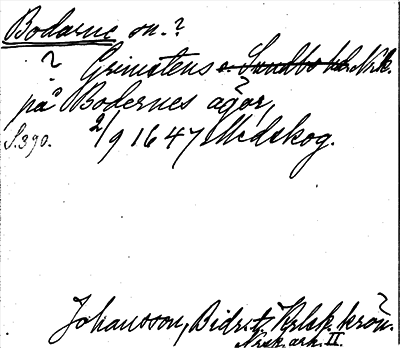 Bodarne on.?
? Grimstens o. Sundbo hd. Nrk.
på Bodernes ägor,
S.390. 2/9 1647 Midskog.
Johansson, Bidr. t. Karlsk. krön.
Nrsk. ark. II.